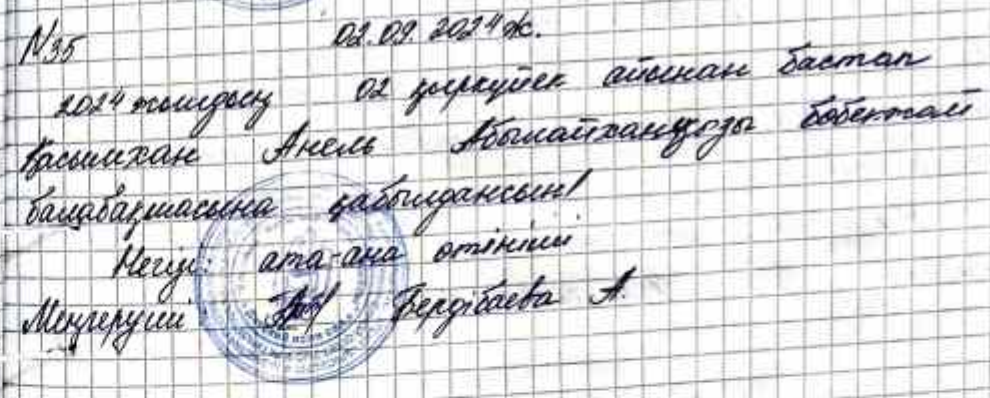 №35 02.09.2024ж.
2024 жылдың 02 қыркүйек айынан бастап
Қасымхан Анель Абылайханқызы бөбекжай
балабақшасына қабылдансын!
Негізі: ата-ана өтініші
Меңгеруші Бердібаева А.